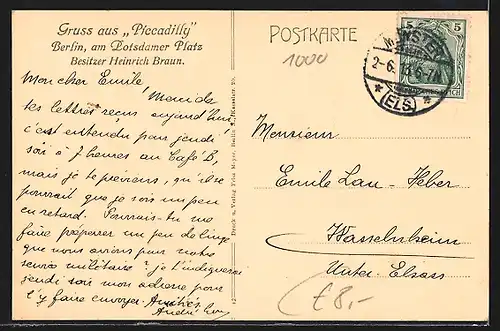 Gruss aus „Piccadilly"
Berlin, am Potsdamer Platz
Besitzer Heinrich Braun.
Mon cher Emile,
Muni de
tes lettres reçues aujourd'hui
c'est entendu pour jeudi
soir à 7 heures au Café B,
mais je te préviens, qu'il se
pourrait que je sois un peu
en retard. Pourrais-tu me
faire préparer un peu de linge
que nous avions pour notre
service militaire? je t'indiquerai
jeudi soir mon adresse pour
t'y faire envoyer. Amitiés
André
Druck u. Verlag Fritz Meyer, Berlin
POSTKARTE
1000
MÜNSTER
(ELS)
5 5
Monsieur
Emile Lau-Heber
Wasselnheim
Unter-Elsass
£8,-